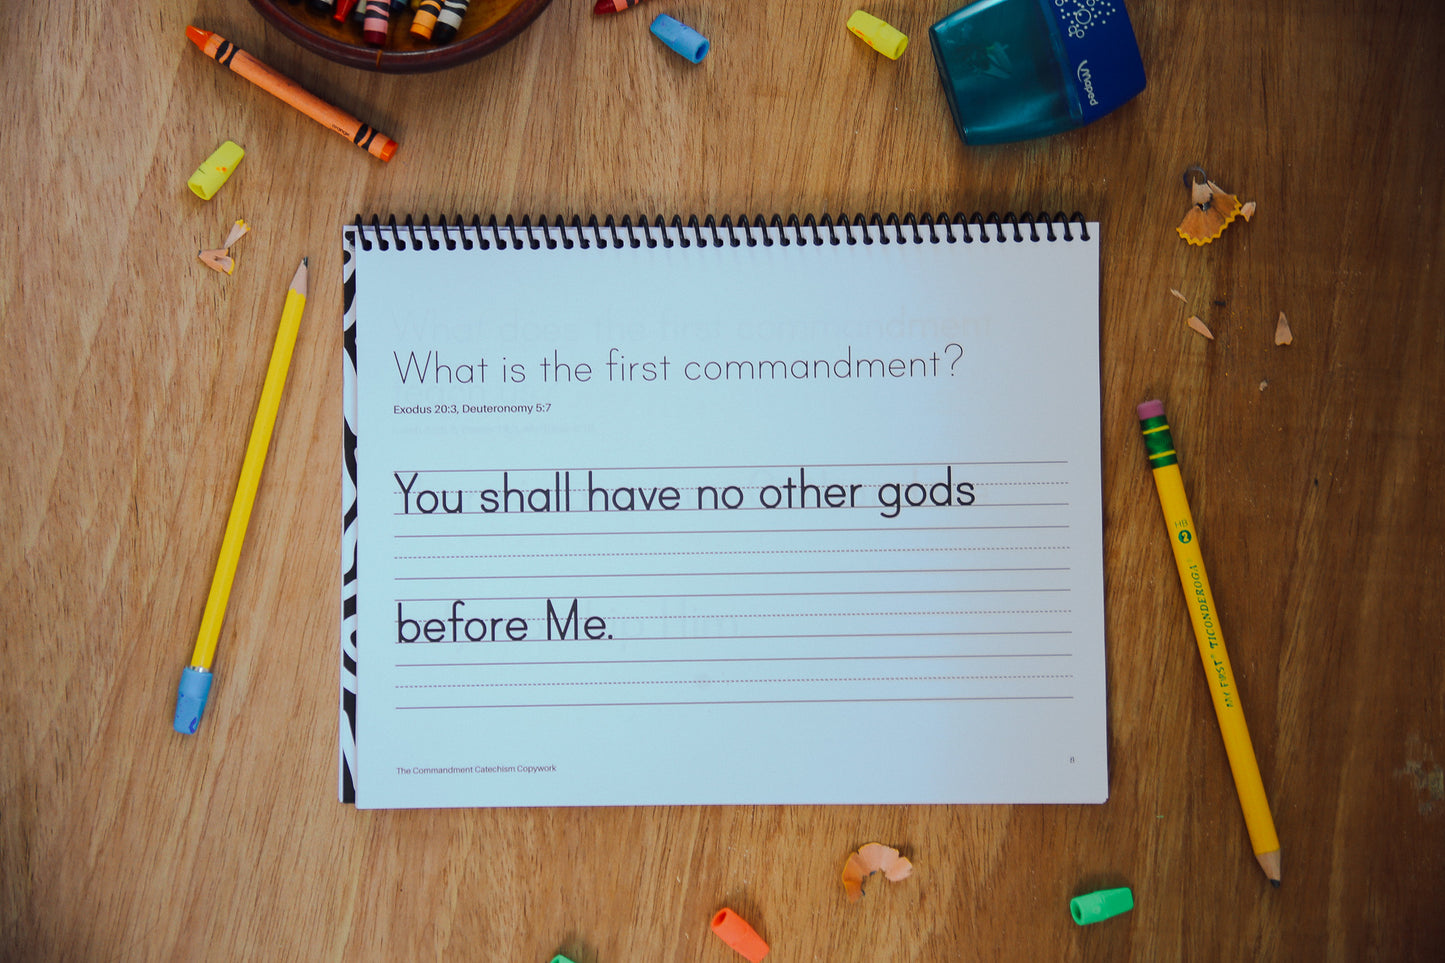 orange
Maped
What is the first commandment?
Exodus 20:3, Deuteronomy 5:7
You shall have no other gods
before Me.
The Commandment Catechism Copywork
8
HB
2
MY FIRST® TICONDEROGA®